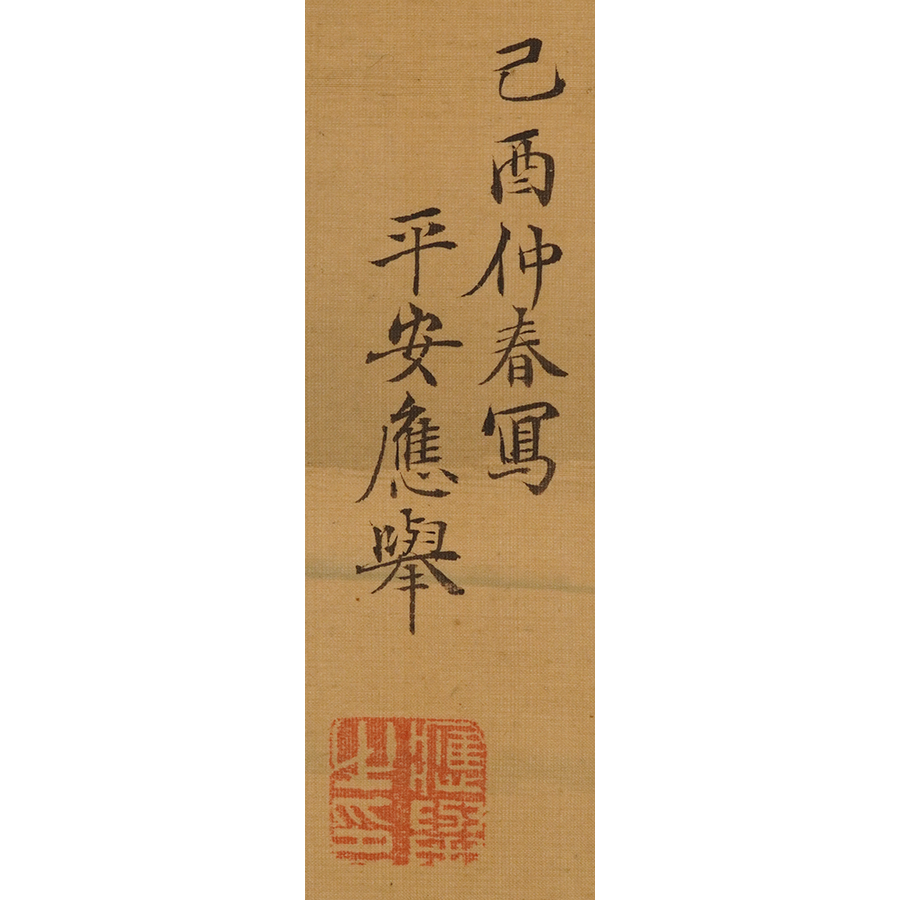 己酉仲春寫
平安應擧
應擧
之印